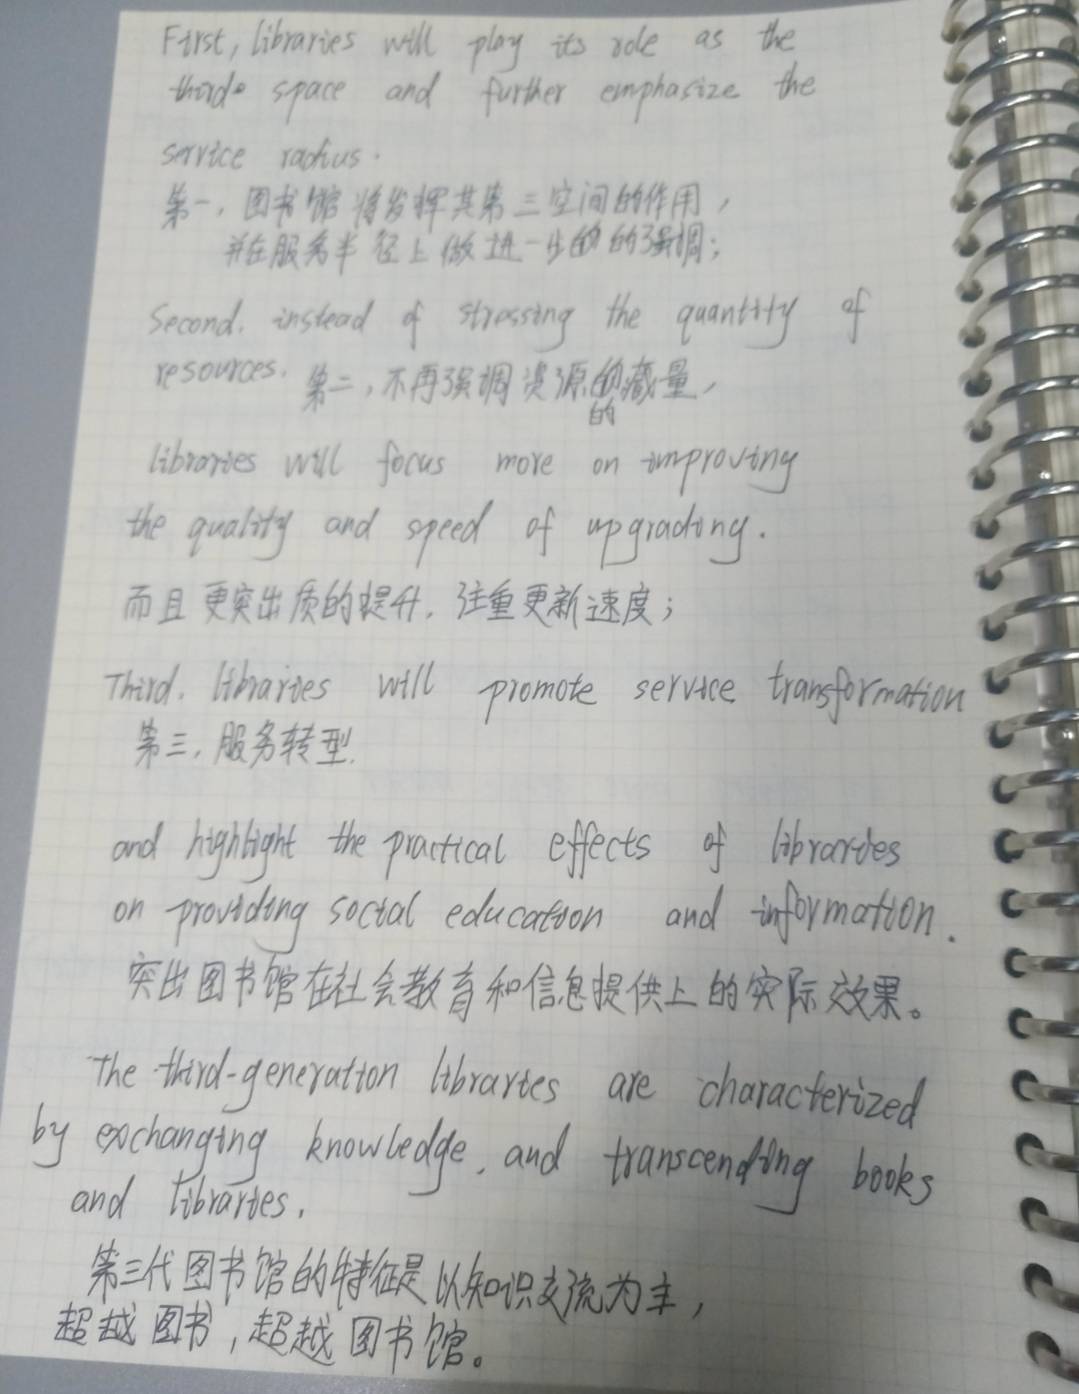 First, libraries will play its role as the
third space and further emphasize the
service radius.
第一,图书馆将发挥其第三空间的作用,
并在服务半径上做进一步的的强调;
Second. instead of stressing the quantity of
resources. 第二,不再强调资源的藏量,
的
libraries will focus more on improving
the quality and speed of upgrading.
而且更突出质的提升,注重更新速度;
Third. libraries will promote service transformation
第三,服务转型.
and highlight the practical effects of libraries
on providing social education and information.
突出图书馆在社会教育和信息提供上的实际效果。
The third-generation libraries are characterized
by exchanging knowledge, and transcending books
and libraries.
第三代图书馆的特征是以知识交流为主,
超越图书,超越图书馆。